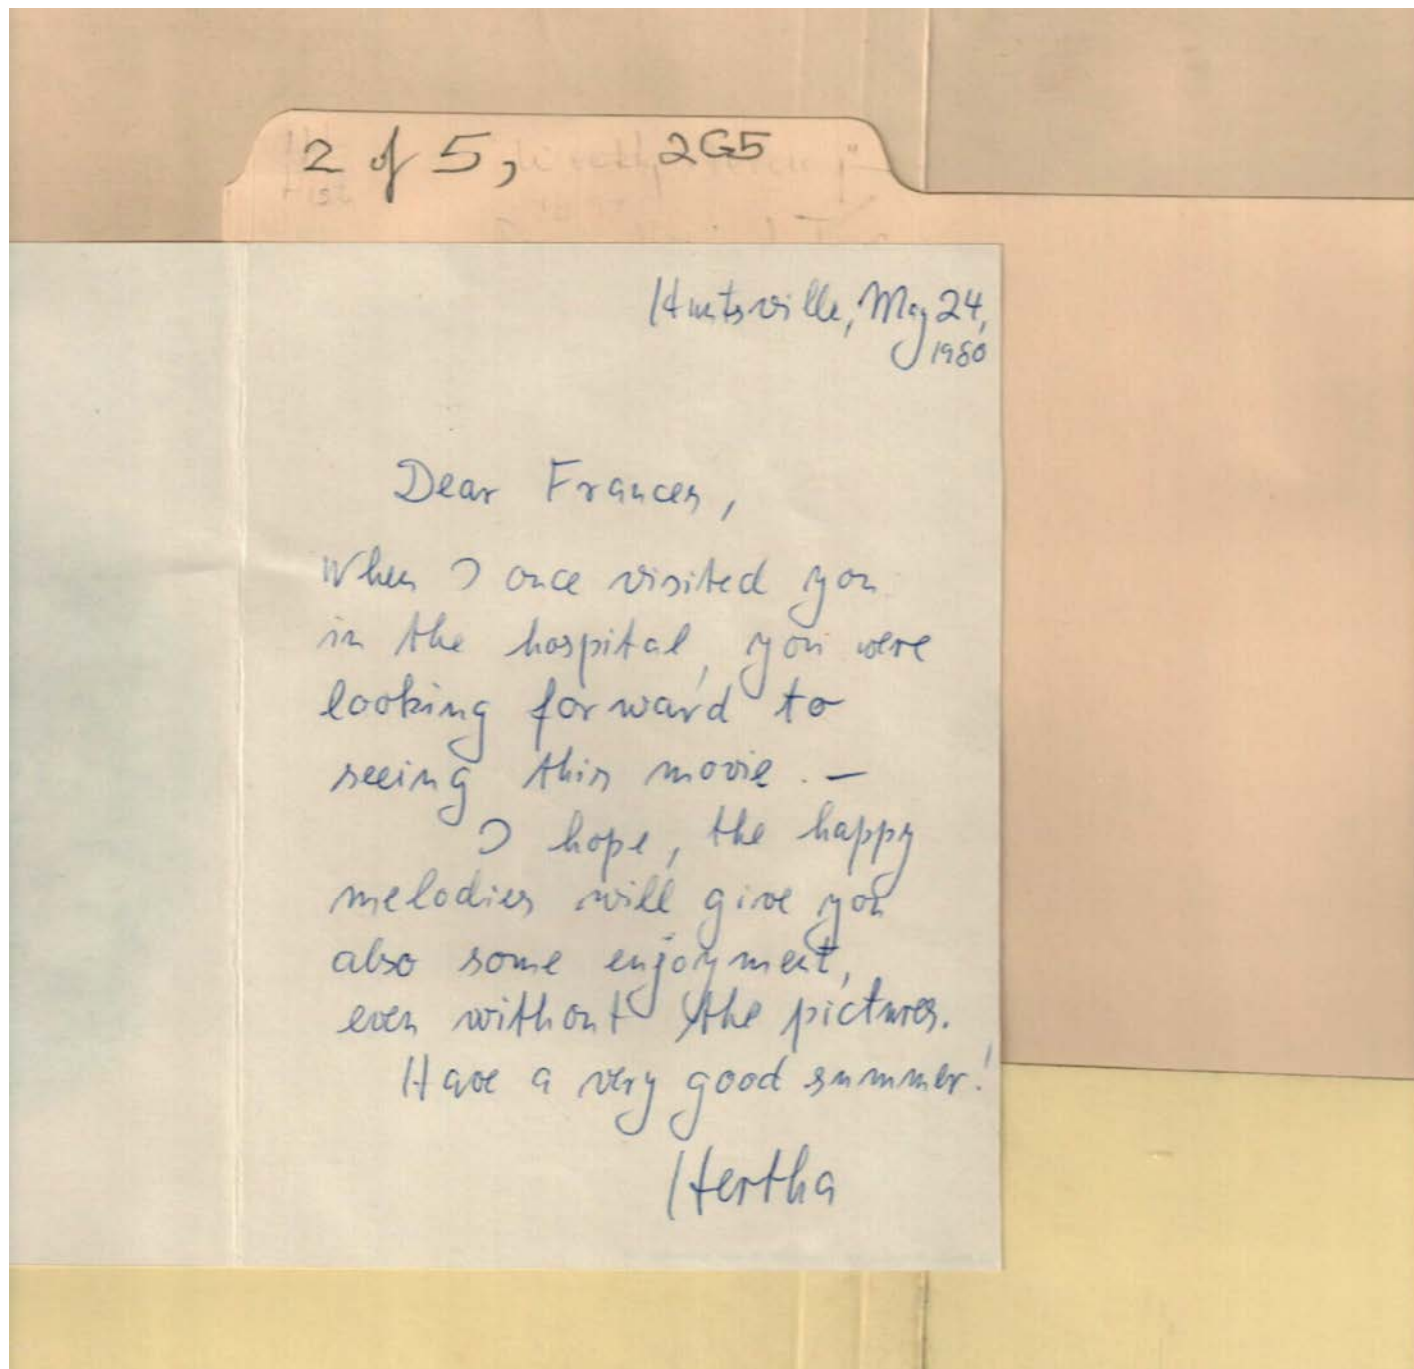 2 of 5, 2G5
Huntsville, May 24,
1980
Dear Frances,
When I once visited you
in the hospital, you were
looking forward to
seeing this movie. —
I hope, the happy
melodies will give you
also some enjoyment,
even without the pictures.
Have a very good summer!
Hertha